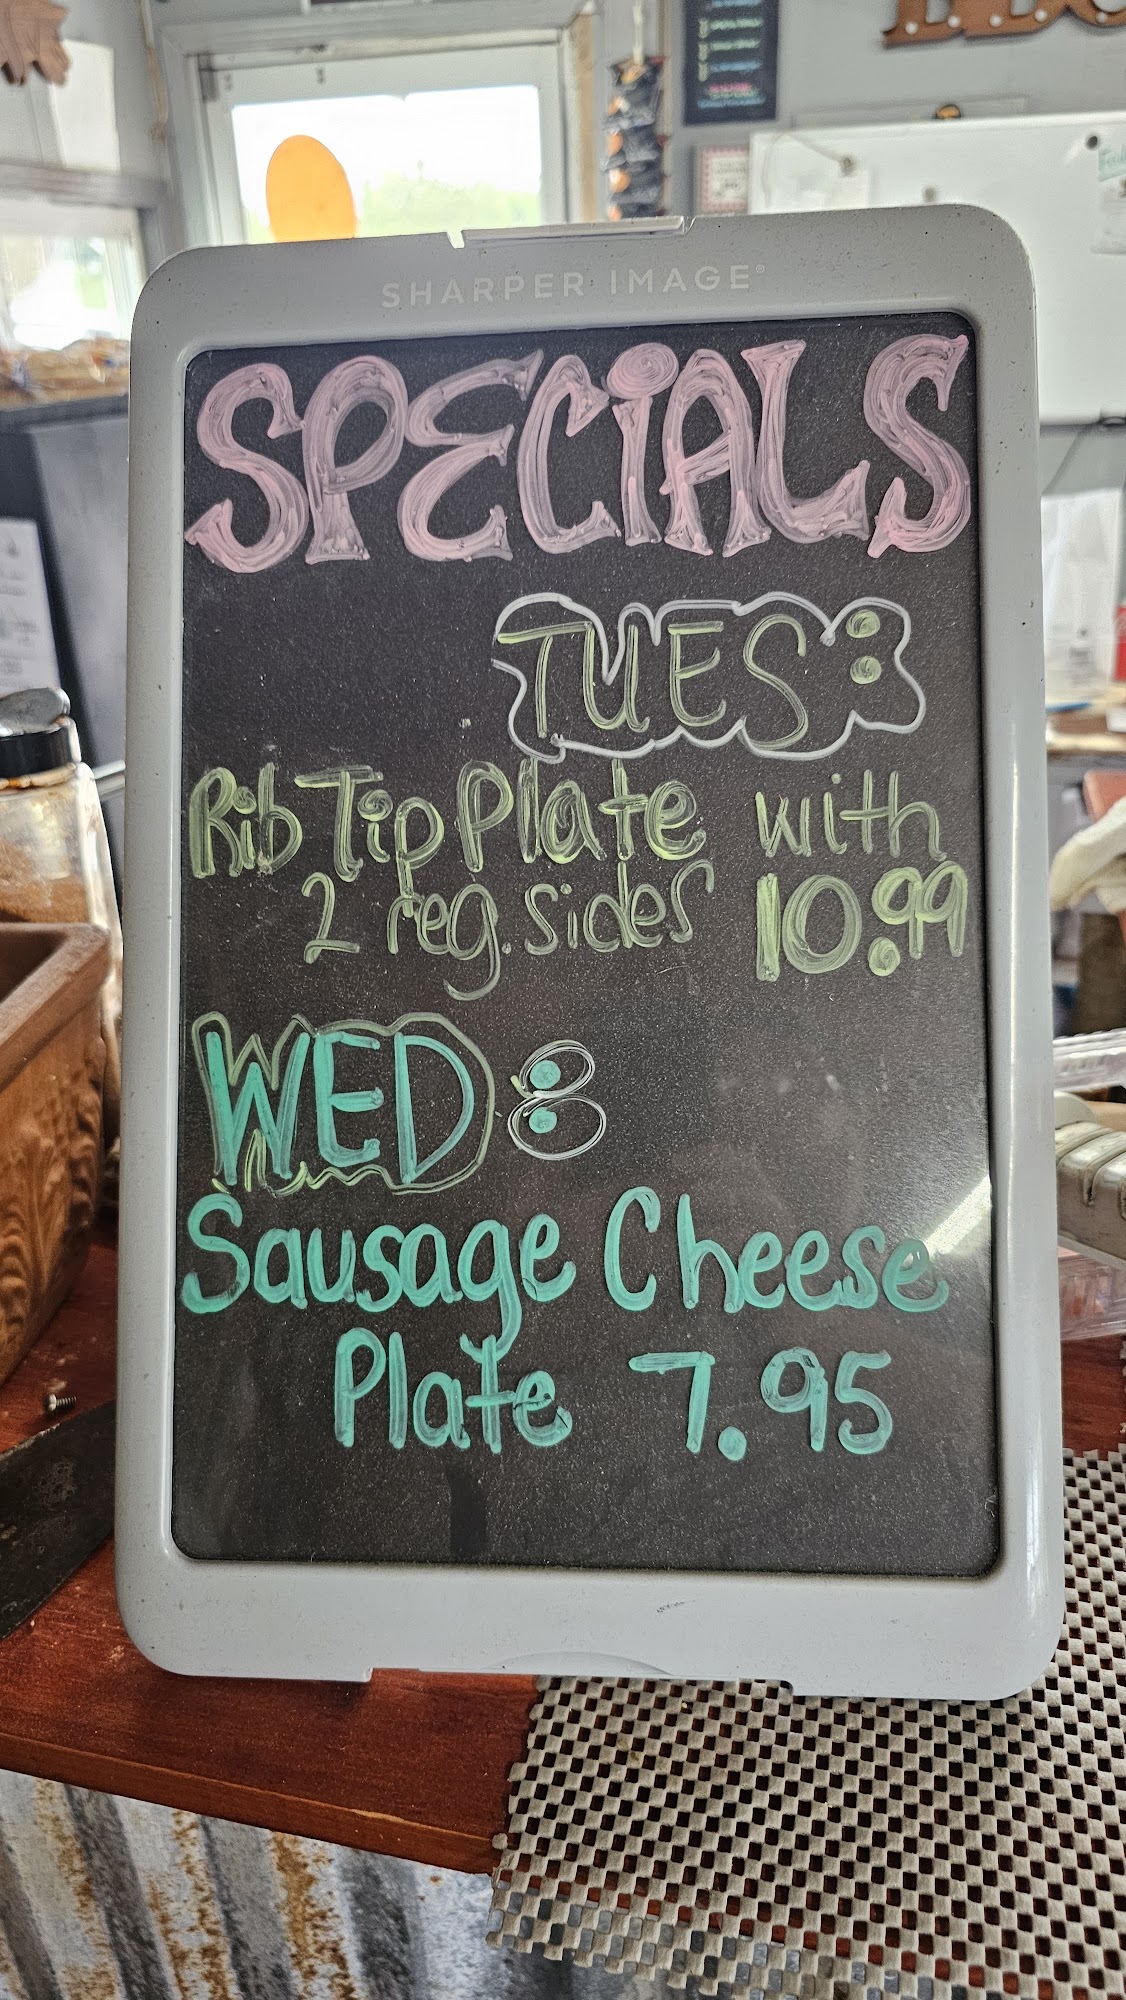 SHARPER IMAGE®
SPECIALS
TUES:
Rib Tip Plate with
2 reg. sides 10.99
WED:
Sausage Cheese
Plate 7.95